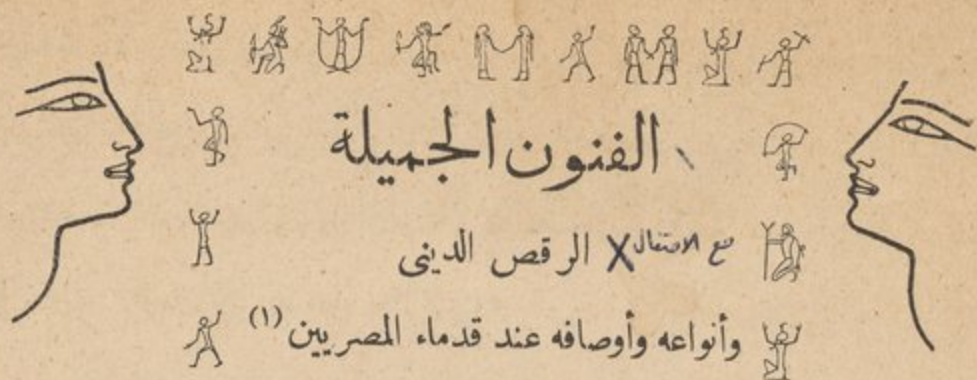 الفنون الجميلة
مع X الرقص الدينى
وأنواعه وأوصافه عند قدماء المصريين (١)